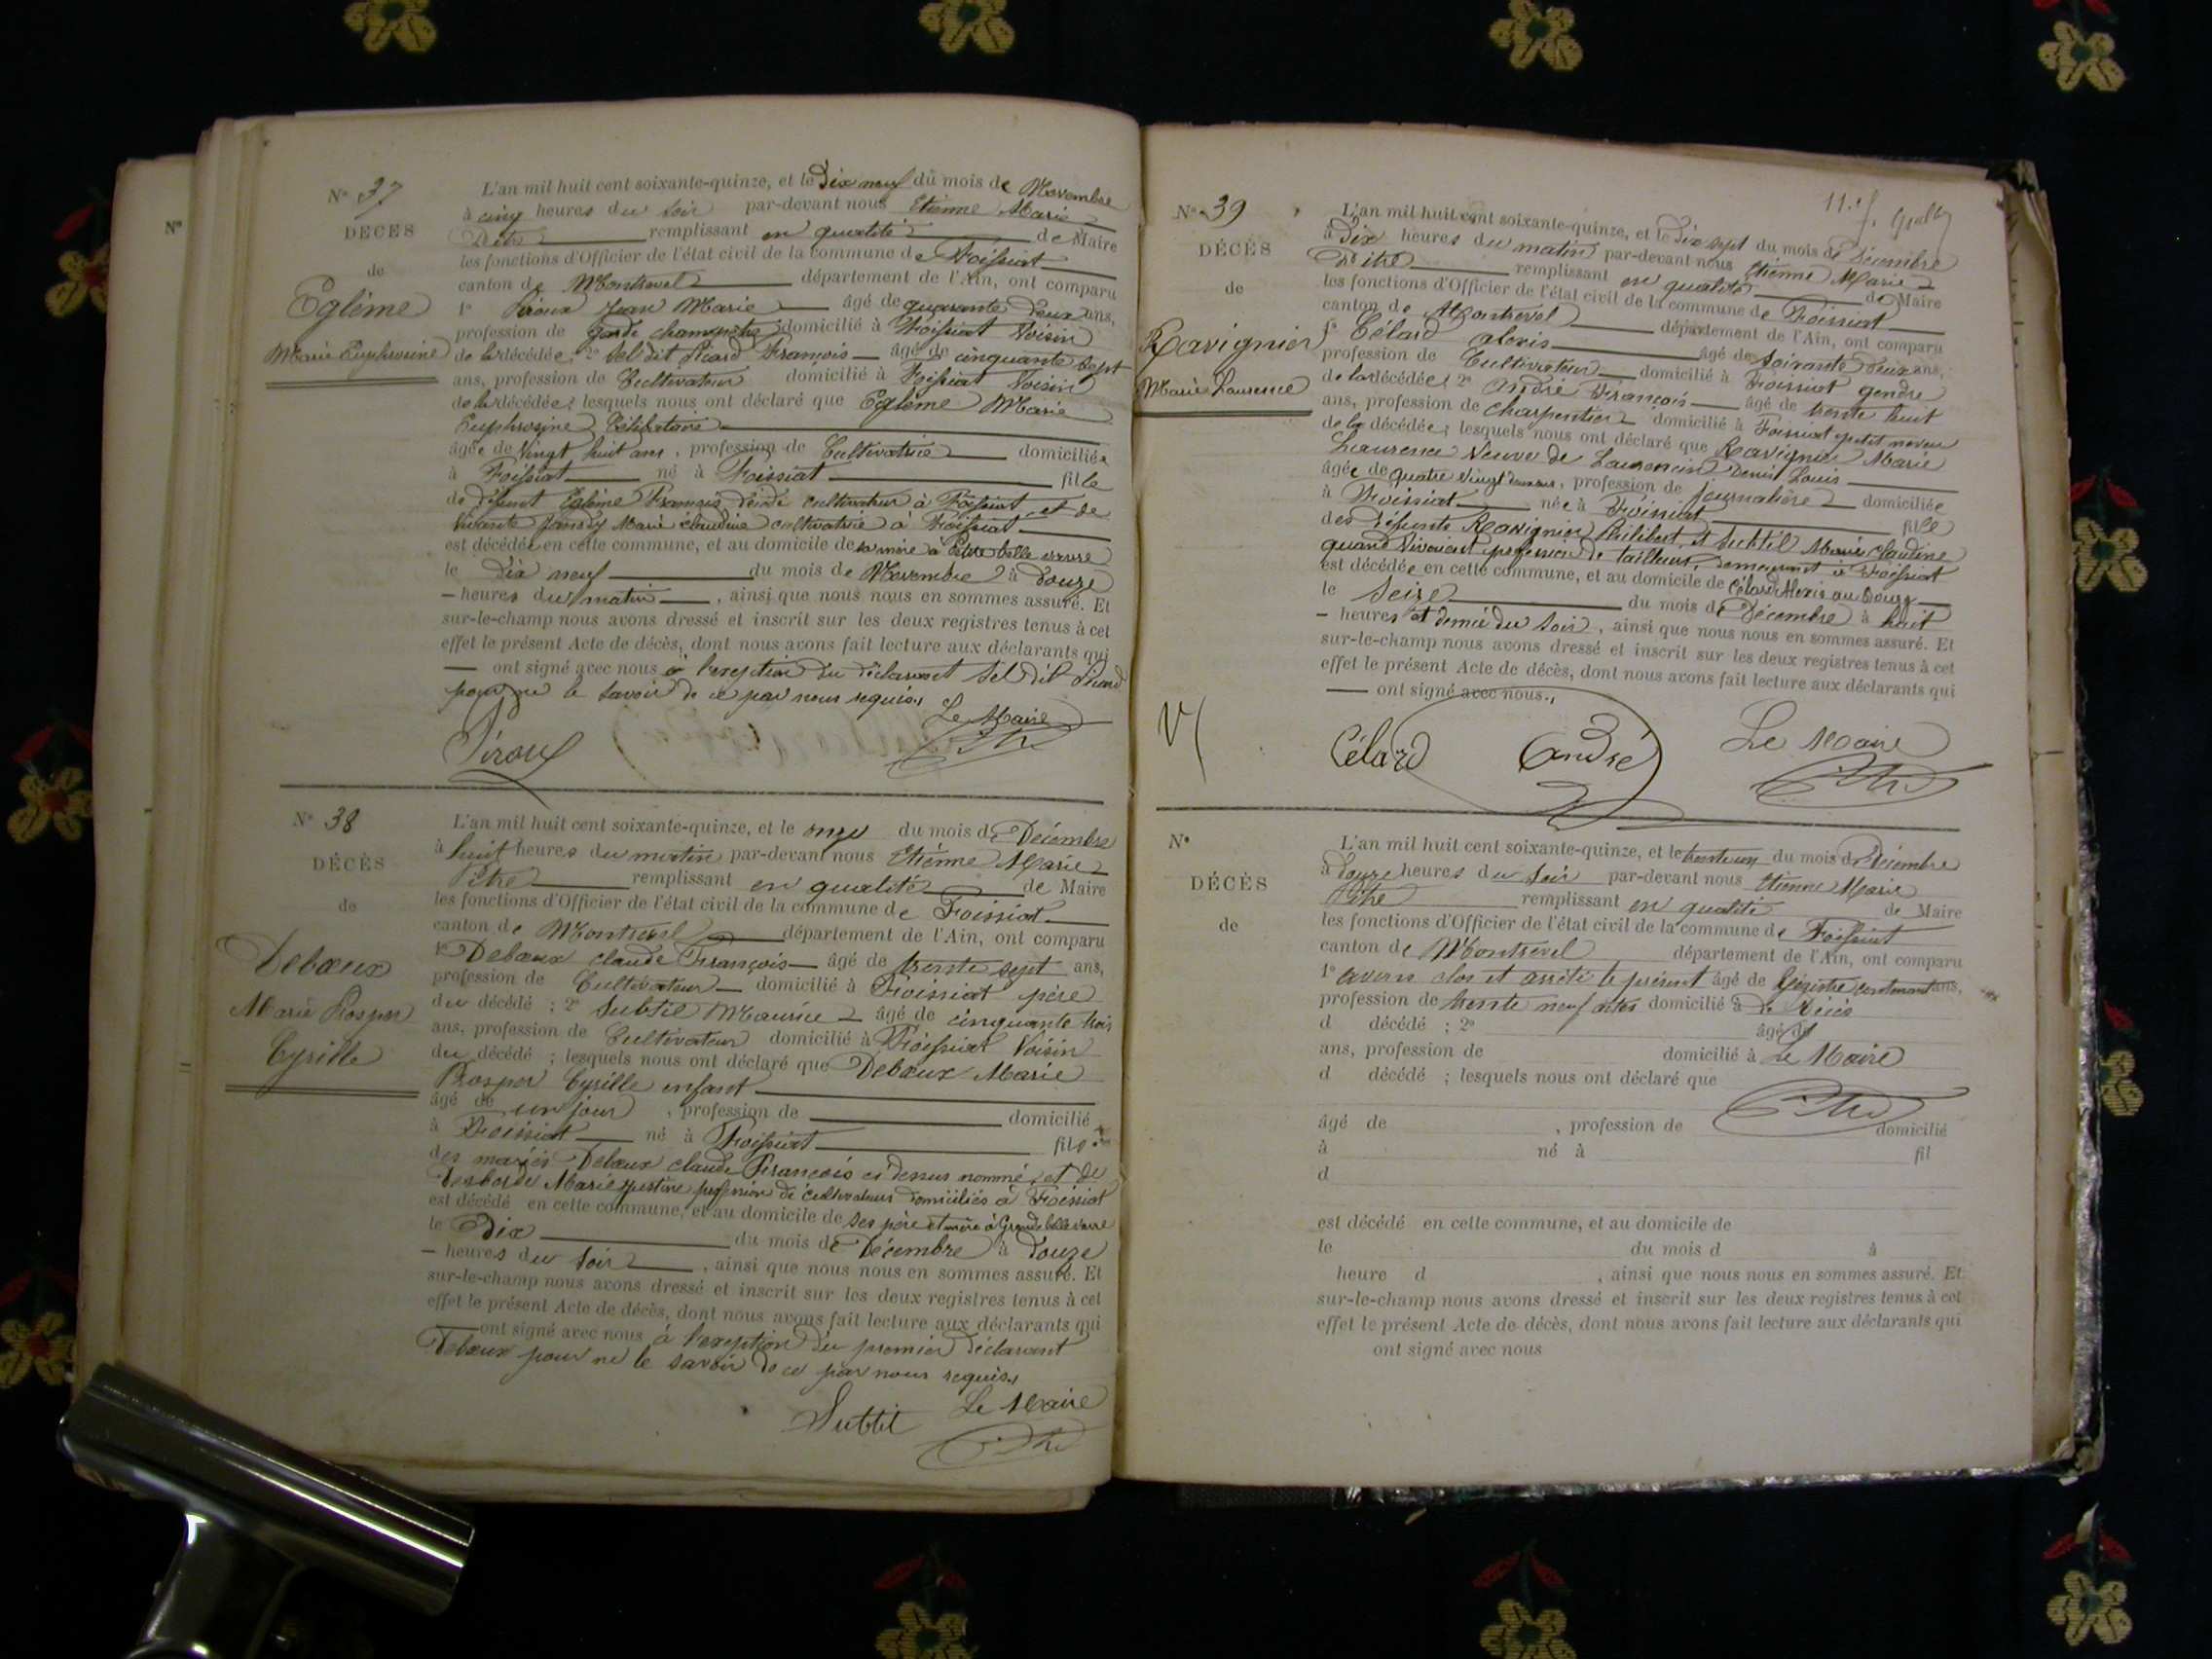 N°
N° 37
DÉCÈS
de
Eglème
Marie Euphrosine
L'an mil huit cent soixante-quinze, et le Dix neuf du mois de Novembre
à cinq heures du soir par-devant nous Etienne Marie
Pitre remplissant en qualité de Maire
les fonctions d'Officier de l'état civil de la commune de Foissiat
canton de Montrevel département de l'Ain, ont comparu
1° Piroux Jean Marie âgé de quarante deux ans,
profession de garde champetre domicilié à Foissiat Voisin
de la décédée; 2° Sel dit Picard François âgé de cinquante sept
ans, profession de Cultivateur domicilié à Foissiat Voisin
de la décédée; lesquels nous ont déclaré que Eglème Marie
Euphrosine Célibataire
âgée de Vingt huit ans, profession de Cultivatrice domiciliée
à Foissiat né à Foissiat fille
de défunt Eglème François décédé cultivateur à Foissiat et de
vivante Marie claudine cultivatrice à Foissiat
est décédée en cette commune, et au domicile de sa mère à Petite belle
le Dix neuf du mois de Novembre à douze
heures du matin, ainsi que nous nous en sommes assuré. Et
sur-le-champ nous avons dressé et inscrit sur les deux registres tenus à cet
effet le présent Acte de décès, dont nous avons fait lecture aux déclarants qui
ont signé avec nous à l'exception du déclarant Sel dit Picard
pour ne le savoir de ce par nous requis.
Le Maire
Piroux
N° 38
DÉCÈS
de
Debœux
Marie Prosper
Cyrille
L'an mil huit cent soixante-quinze, et le onze du mois de Décembre
à huit heures du matin par-devant nous Etienne Marie
Pitre remplissant en qualité de Maire
les fonctions d'Officier de l'état civil de la commune de Foissiat
canton de Montrevel département de l'Ain, ont comparu
1° Debœux claude François âgé de trente sept ans,
profession de Cultivateur domicilié à Foissiat père
du décédé; 2° Subtil Maurice âgé de cinquante trois
ans, profession de Cultivateur domicilié à Foissiat Voisin
du décédé; lesquels nous ont déclaré que Debœux Marie
Prosper Cyrille enfant
âgé de un jour, profession de domicilié
à Foissiat né à Foissiat fils
des mariés Debœux claude François ci dessus nommé, et de
Marie justine profession de cultivateurs domiciliés à Foissiat
est décédé en cette commune, et au domicile de ses père et mère à Grande belle
le Dix du mois de Décembre à douze
heures du soir, ainsi que nous nous en sommes assuré. Et
sur-le-champ nous avons dressé et inscrit sur les deux registres tenus à cet
effet le présent Acte de décès, dont nous avons fait lecture aux déclarants qui
ont signé avec nous à l'exception du premier déclarant
Debœux pour ne le savoir de ce par nous requis.
Le Maire
Subtil
11.e f.
N° 39
DÉCÈS
de
Ravignier
Marie Laurence
L'an mil huit cent soixante-quinze, et le dix sept du mois de Décembre
à Dix heures du matin par-devant nous Etienne Marie
Pitre remplissant en qualité de Maire
les fonctions d'Officier de l'état civil de la commune de Foissiat
canton de Montrevel département de l'Ain, ont comparu
1° Célard alexis âgé de soixante deux ans,
profession de Cultivateur domicilié à Foissiat gendre
de la décédée; 2° André François âgé de trente huit
ans, profession de charpentier domicilié à Foissiat petit neveu
de la décédée; lesquels nous ont déclaré que Ravignier Marie
Laurence Veuve de Denis Louis
âgée de quatre vingt ans, profession de journalière domiciliée
à Foissiat née à Foissiat fille
des défunts Ravignier Philibert et Subtil Marie claudine
quand vivaient profession de tailleurs, demeurant à Foissiat
est décédée en cette commune, et au domicile de Célard Alexis au bourg
le Seize du mois de Décembre à huit
heures et demie du soir, ainsi que nous nous en sommes assuré. Et
sur-le-champ nous avons dressé et inscrit sur les deux registres tenus à cet
effet le présent Acte de décès, dont nous avons fait lecture aux déclarants qui
ont signé avec nous.
Célard André Le Maire
N°
DÉCÈS
de
L'an mil huit cent soixante-quinze, et le trente un du mois de Décembre
à douze heures du soir par-devant nous Etienne Marie
Pitre remplissant en qualité de Maire
les fonctions d'Officier de l'état civil de la commune de Foissiat
canton de Montrevel département de l'Ain, ont comparu
1° avons clos et arrêté le présent âgé de Régistre contenant ans,
profession de trente neuf actes domicilié à de décès
d décédé ; 2° âgé de
ans, profession de domicilié à Le Maire
d décédé ; lesquels nous ont déclaré que
âgé de , profession de domicilié
à né à fil
d
est décédé en cette commune, et au domicile de
le du mois d à
heure d , ainsi que nous nous en sommes assuré. Et
sur-le-champ nous avons dressé et inscrit sur les deux registres tenus à cet
effet le présent Acte de décès, dont nous avons fait lecture aux déclarants qui
ont signé avec nous